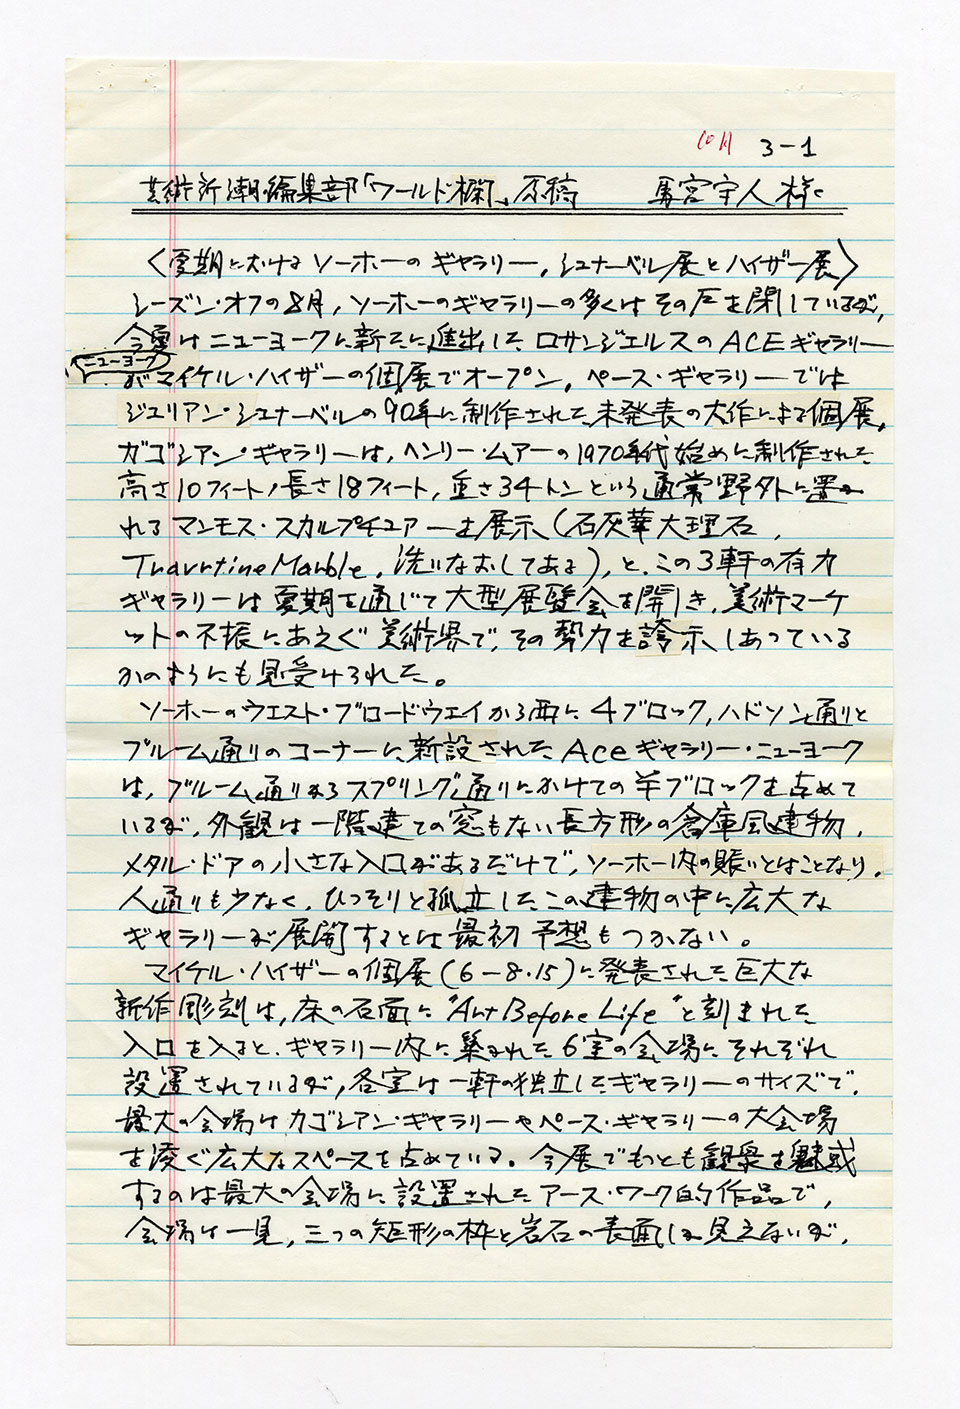 10月 3-1
芸術新潮編集部「ワールド欄」原稿 馬宮宇人様
〈夏期におけるソーホーのギャラリー, シュナーベル展とハイザー展〉
シーズン・オフの8月, ソーホーのギャラリーの多くはその戸を閉しているが,
今夏はニューヨークに新たに進出したロサンジェルスのACEギャラリー
ニューヨーク
がマイケル・ハイザーの個展でオープン, ペース・ギャラリーでは
ジュリアン・シュナーベルの90年に制作された未発表の大作による個展,
ガゴシアン・ギャラリーは, ヘンリー・ムアーの1970年代始めに制作された
高さ10フィート, 長さ18フィート, 重さ34トンという通常野外に置か
れるマンモス・スカルプチュアーを展示(石灰華大理石,
Travrtine Marble, 洗いなおしてある), と, この3軒の有力
ギャラリーは夏期を通じて大型展覧会を開き, 美術マーケ
ットの不振にあえぐ美術界で, その勢力を誇示しあっている
かのようにも見受けられた。
ソーホーのウエスト・ブロードウェイから西に4ブロック, ハドソン通りと
ブルーム通りのコーナーに新設されたAceギャラリー・ニューヨーク
は, ブルーム通りからスプリング通りにかけての半ブロックを占めて
いるが, 外観は一階建ての窓もない長方形の倉庫風建物,
メタル・ドアの小さな入口があるだけで, ソーホー内の賑いとはことなり,
人通りも少なく, ひっそりと孤立したこの建物の中に広大な
ギャラリーが展開するとは最初予想もつかない。
マイケル・ハイザーの個展(6-8・15)に発表された巨大な
新作彫刻は, 床の石面に"Art Before Life"と刻まれた
入口を入ると, ギャラリー内に築かれた6室の会場にそれぞれ
設置されているが, 各室は一軒の独立したギャラリーのサイズで,
最大の会場はガゴシアン・ギャラリーやペース・ギャラリーの大会場
を凌ぐ広大なスペースを占めている。今展でもっとも観衆を魅惑
するのは最大の会場に設置されたアース・ワーク的作品で,
会場は一見, 三つの矩形の枠と岩石の表面しか見えないが,